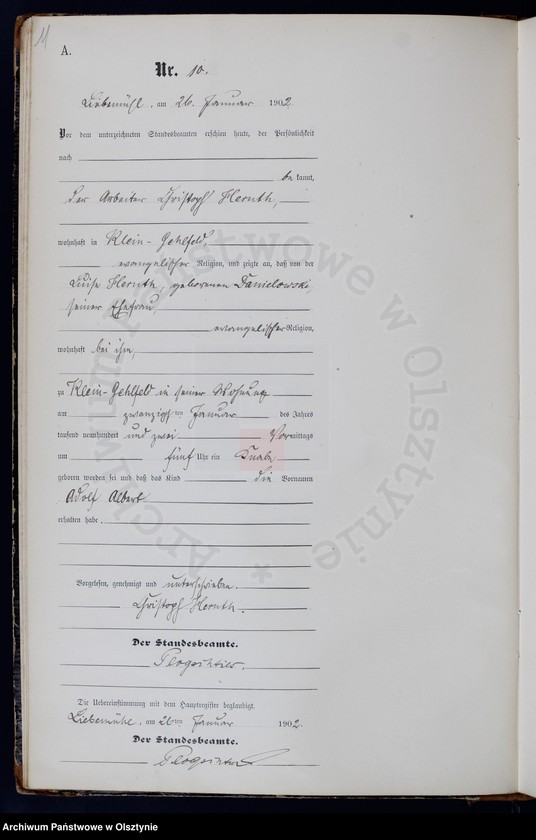 11
A.
Nr. 10.
Liebemühl, am 26. Januar 1902.
Vor dem unterzeichneten Standesbeamten erschien heute, der Persönlichkeit
nach
be kannt,
der Arbeiter Christoph Hernth,
wohnhaft in Klein-Gehlfeld,
evangelischer Religion, und zeigte an, daß von der
Luise Hernth, geborenen Danielowski,
seiner Ehefrau,
evangelischer Religion,
wohnhaft bei ihm,
zu Klein-Gehlfeld in seiner Wohnung
am zwanzigsten Januar des Jahres
tausend neunhundert und zwei Vormittags
um fünf Uhr ein Knabe
geboren worden sei und daß das Kind die Vornamen
Adolf Albert
erhalten habe.
Vorgelesen, genehmigt und unterschrieben.
Christoph Hernth.
Der Standesbeamte.
Die Uebereinstimmung mit dem Hauptregister beglaubigt.
Liebemühl, am 26ten Januar 1902.
Der Standesbeamte.
Archiwum Państwowe w Olsztynie *
Archiwum Państwowe w Olsztynie